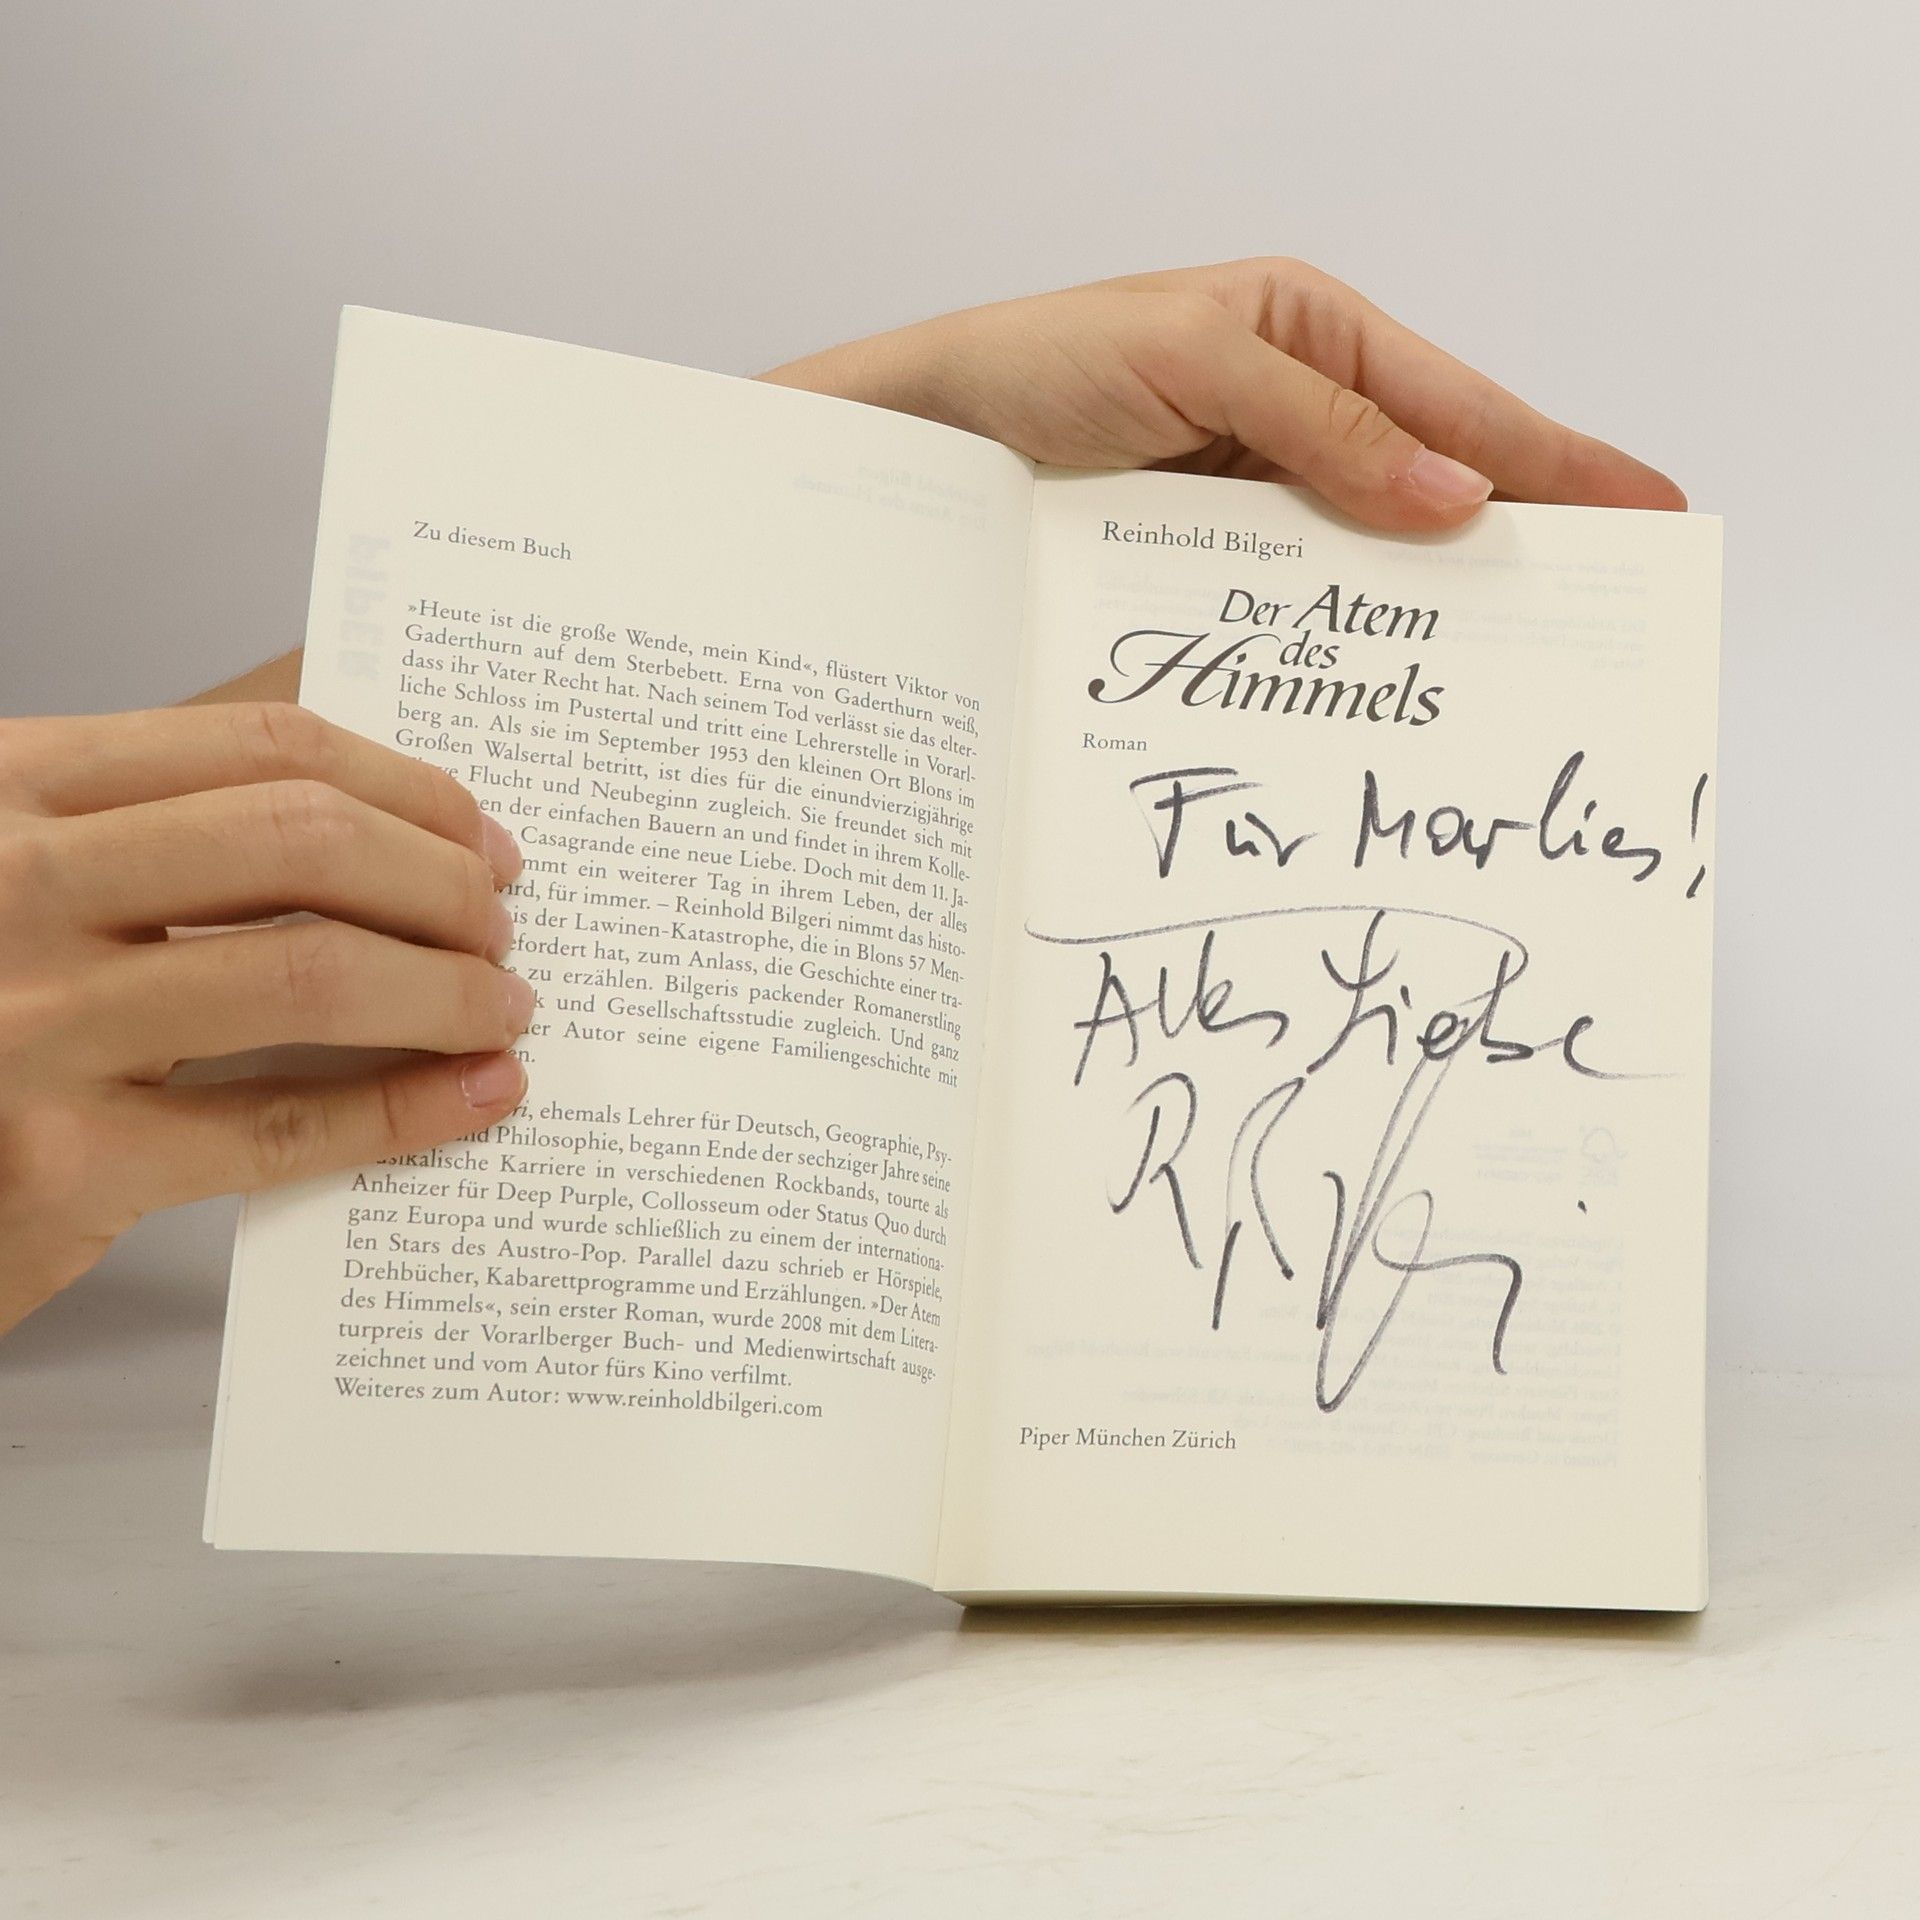 Zu diesem Buch
»Heute ist die große Wende, mein Kind«, flüstert Viktor von
Gaderthurn auf dem Sterbebett. Erna von Gaderthurn weiß,
dass ihr Vater Recht hat. Nach seinem Tod verlässt sie das elter-
liche Schloss im Pustertal und tritt eine Lehrerstelle in Vorarl-
berg an. Als sie im September 1953 den kleinen Ort Blons im
Großen Walsertal betritt, ist dies für die einundvierzigjährige
Flucht und Neubeginn zugleich. Sie freundet sich mit
der einfachen Bauern an und findet in ihrem Kolle-
Casagrande eine neue Liebe. Doch mit dem 11. Ja-
mmt ein weiterer Tag in ihrem Leben, der alles
wird, für immer. – Reinhold Bilgeri nimmt das histo-
is der Lawinen-Katastrophe, die in Blons 57 Men-
efordert hat, zum Anlass, die Geschichte einer tra-
zu erzählen. Bilgeris packender Romanerstling
k und Gesellschaftsstudie zugleich. Und ganz
der Autor seine eigene Familiengeschichte mit
en.
ri, ehemals Lehrer für Deutsch, Geographie, Psy-
nd Philosophie, begann Ende der sechziger Jahre seine
musikalische Karriere in verschiedenen Rockbands, tourte als
Anheizer für Deep Purple, Collosseum oder Status Quo durch
ganz Europa und wurde schließlich zu einem der internationa-
len Stars des Austro-Pop. Parallel dazu schrieb er Hörspiele,
Drehbücher, Kabarettprogramme und Erzählungen. »Der Atem
des Himmels«, sein erster Roman, wurde 2008 mit dem Litera-
turpreis der Vorarlberger Buch- und Medienwirtschaft ausge-
zeichnet und vom Autor fürs Kino verfilmt.
Weiteres zum Autor: www.reinholdbilgeri.com
Reinhold Bilgeri
Der Atem
des
Himmels
Roman
Für Marlies!
Alles Liebe
Piper München Zürich